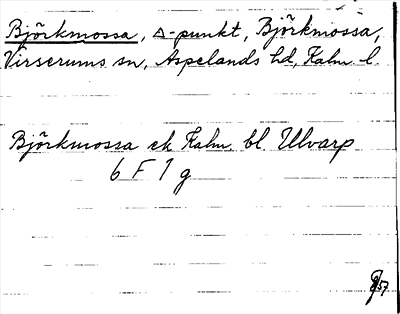 Björkmossa, Δ-punkt, Björkmossa,
Virserums sn, Aspelands hd, Kalm. l.
Björkmossa ek Kalm. bl. Ulvarp
6 F 1 g
57